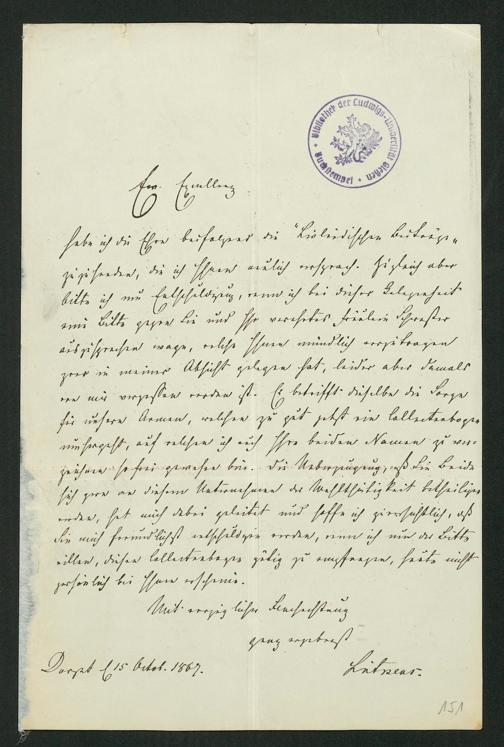 Bibliothek der Ludwigs-Universität Gießen
Buchstempel
Ew. Excellenz
habe ich die Ehre beifolgend die "Livländischen Beiträge"
zuzusenden, die ich Ihnen neulich versprach. Zugleich aber
bitte ich um Entschuldigung, wenn ich bei dieser Gelegenheit
eine Bitte gegen Sie und Ihr verehrtes Fräulein Schwester
auszusprechen wage, welche Ihnen mündlich vorzutragen
zwar in meiner Absicht gelegen hat, leider aber damals
von mir vergessen worden ist. Es betrifft dieselbe die Sorge
für unsere Armen, welchen zu gut jetzt ein Collectenbogen
umhergeht, auf welchen ich auch Ihre beiden Namen zu ver-
zeichnen so frei gewesen bin. Die Ueberzeugung, daß Sie Beide
sich gern an diesem Unternehmen der Wohlthätigkeit betheiligen
werden, hat mich dabei geleitet und hoffe ich zuversichtlich, daß
Sie mich freundlichst entschuldigen werden, wenn ich um die Bitte
willen, diesen Collectenbogen gütig zu empfangen, heute nicht
persönlich bei Ihnen erscheine.
Mit vorzüglicher Hochachtung
ganz ergebenst
Dorpat d 15 Octob. 1867.
Lütkens.
151